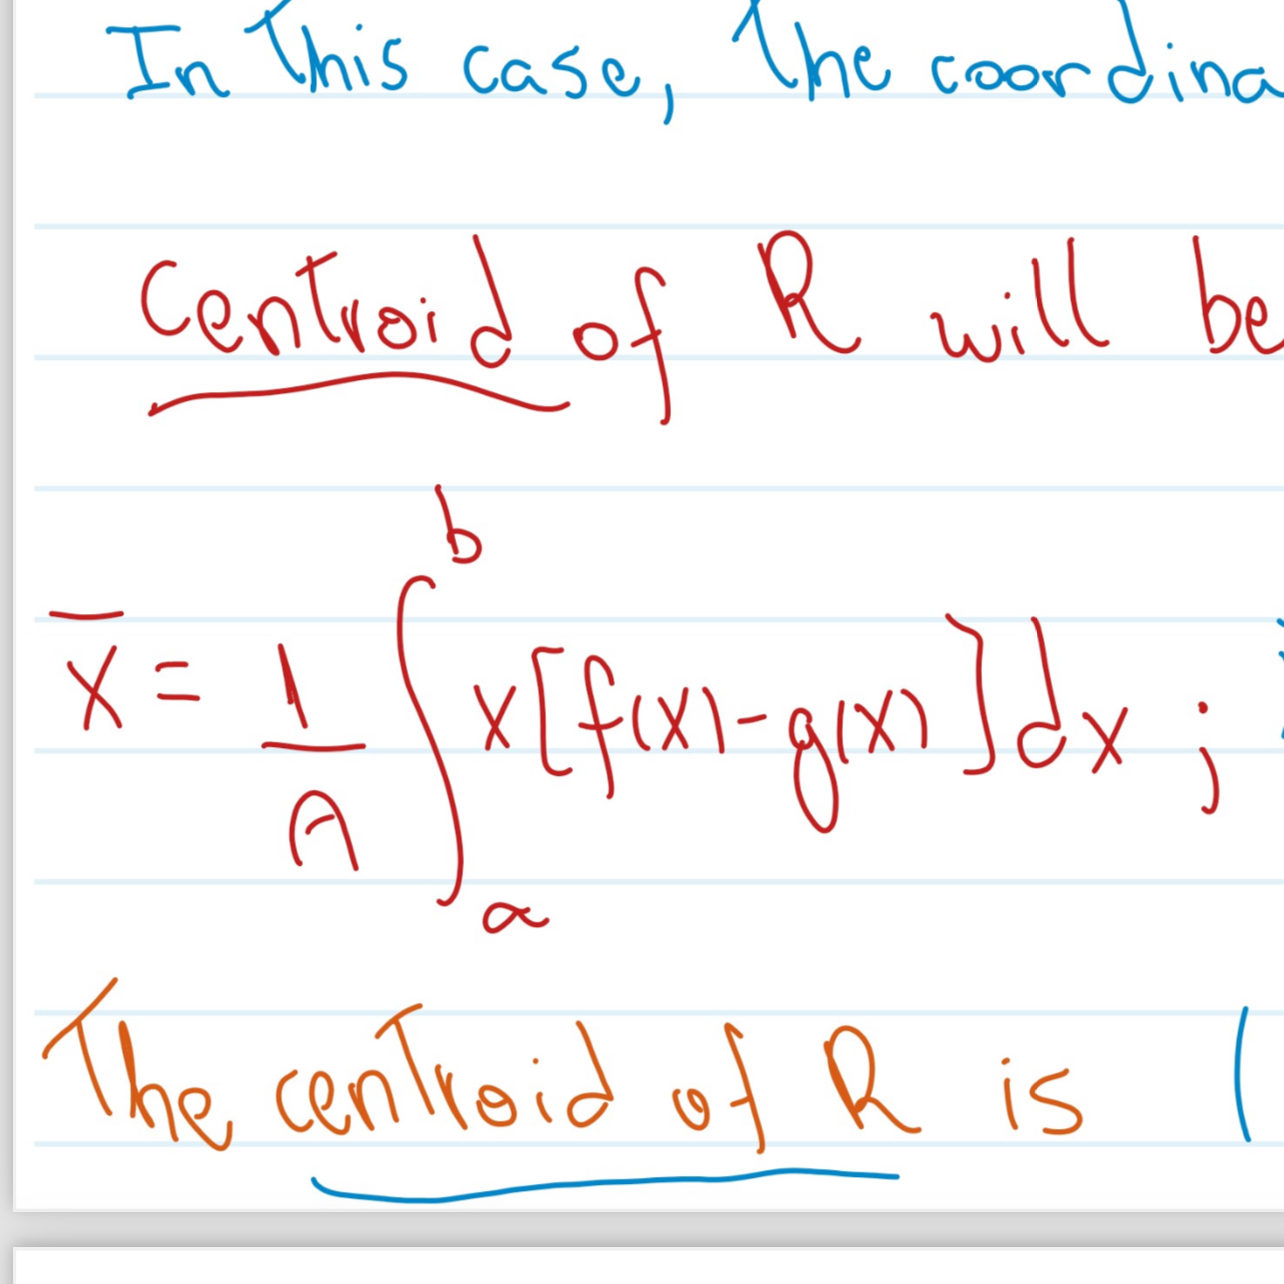 In this case, the coordina
Centroid of R will be
x̄ = 1/A ∫_a^b x[f(x)-g(x)]dx ;
The centroid of R is (